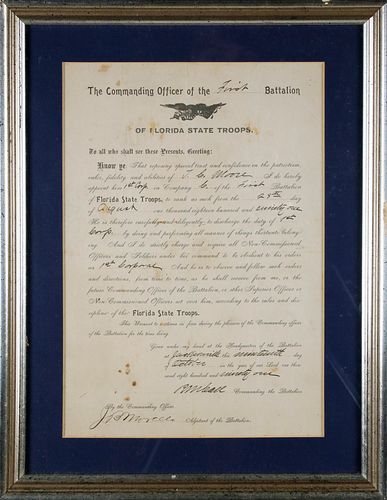 The Commanding Officer of the First Battalion
OF FLORIDA STATE TROOPS.
To all who shall see these Presents, Greeting:
Know ye That reposing special trust and confidence in the patriotism,
valor, fidelity and abilities of C. Moore I do hereby
appoint him 1st Corp. in Company of the First Battalion
of Florida State Troops, to rank as such from the 25th day
of August one thousand eighteen hundred and ninety one
He is therefore carefully and diligently to discharge the duty of 1st
Corp. by doing and performing all manner of things thereunto belong-
ing. And I do strictly charge and require all Non-Commissioned
Officers and Soldiers under his command to be obedient to his orders
as 1st Corporal And he is to observe and follow such orders
and directions, from time to time, as he shall receive from me, or the
future Commanding Officer of the Battalion, or other Superior Officers or
Non-Commissioned Officers set over him, according to the rules and dis-
cipline of the Florida State Troops.
This Warrant to continue in force during the pleasure of the Commanding officer
of the Battalion for the time being.
Given under my hand at the Headquarters of the Battalion
at Jacksonville this nineteenth
day of October in the year of our Lord one thou-
sand eight hundred and ninety one
Commanding the Battalion.
By the Commanding Officer
Adjutant of the Battalion.